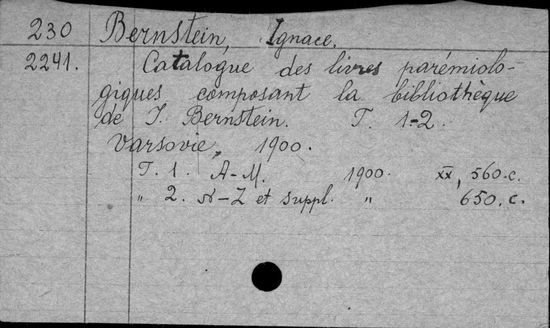 230 Bernstein, Ignace.
2241. Catalogue des livres parémiolo-
giques composant la bibliothèque
de I. Bernstein. T. 1-2.
Varsovie, 1900.
T. 1. A-M. 1900. XX, 560.c.
" 2. N-Z et suppl. " 650.c.